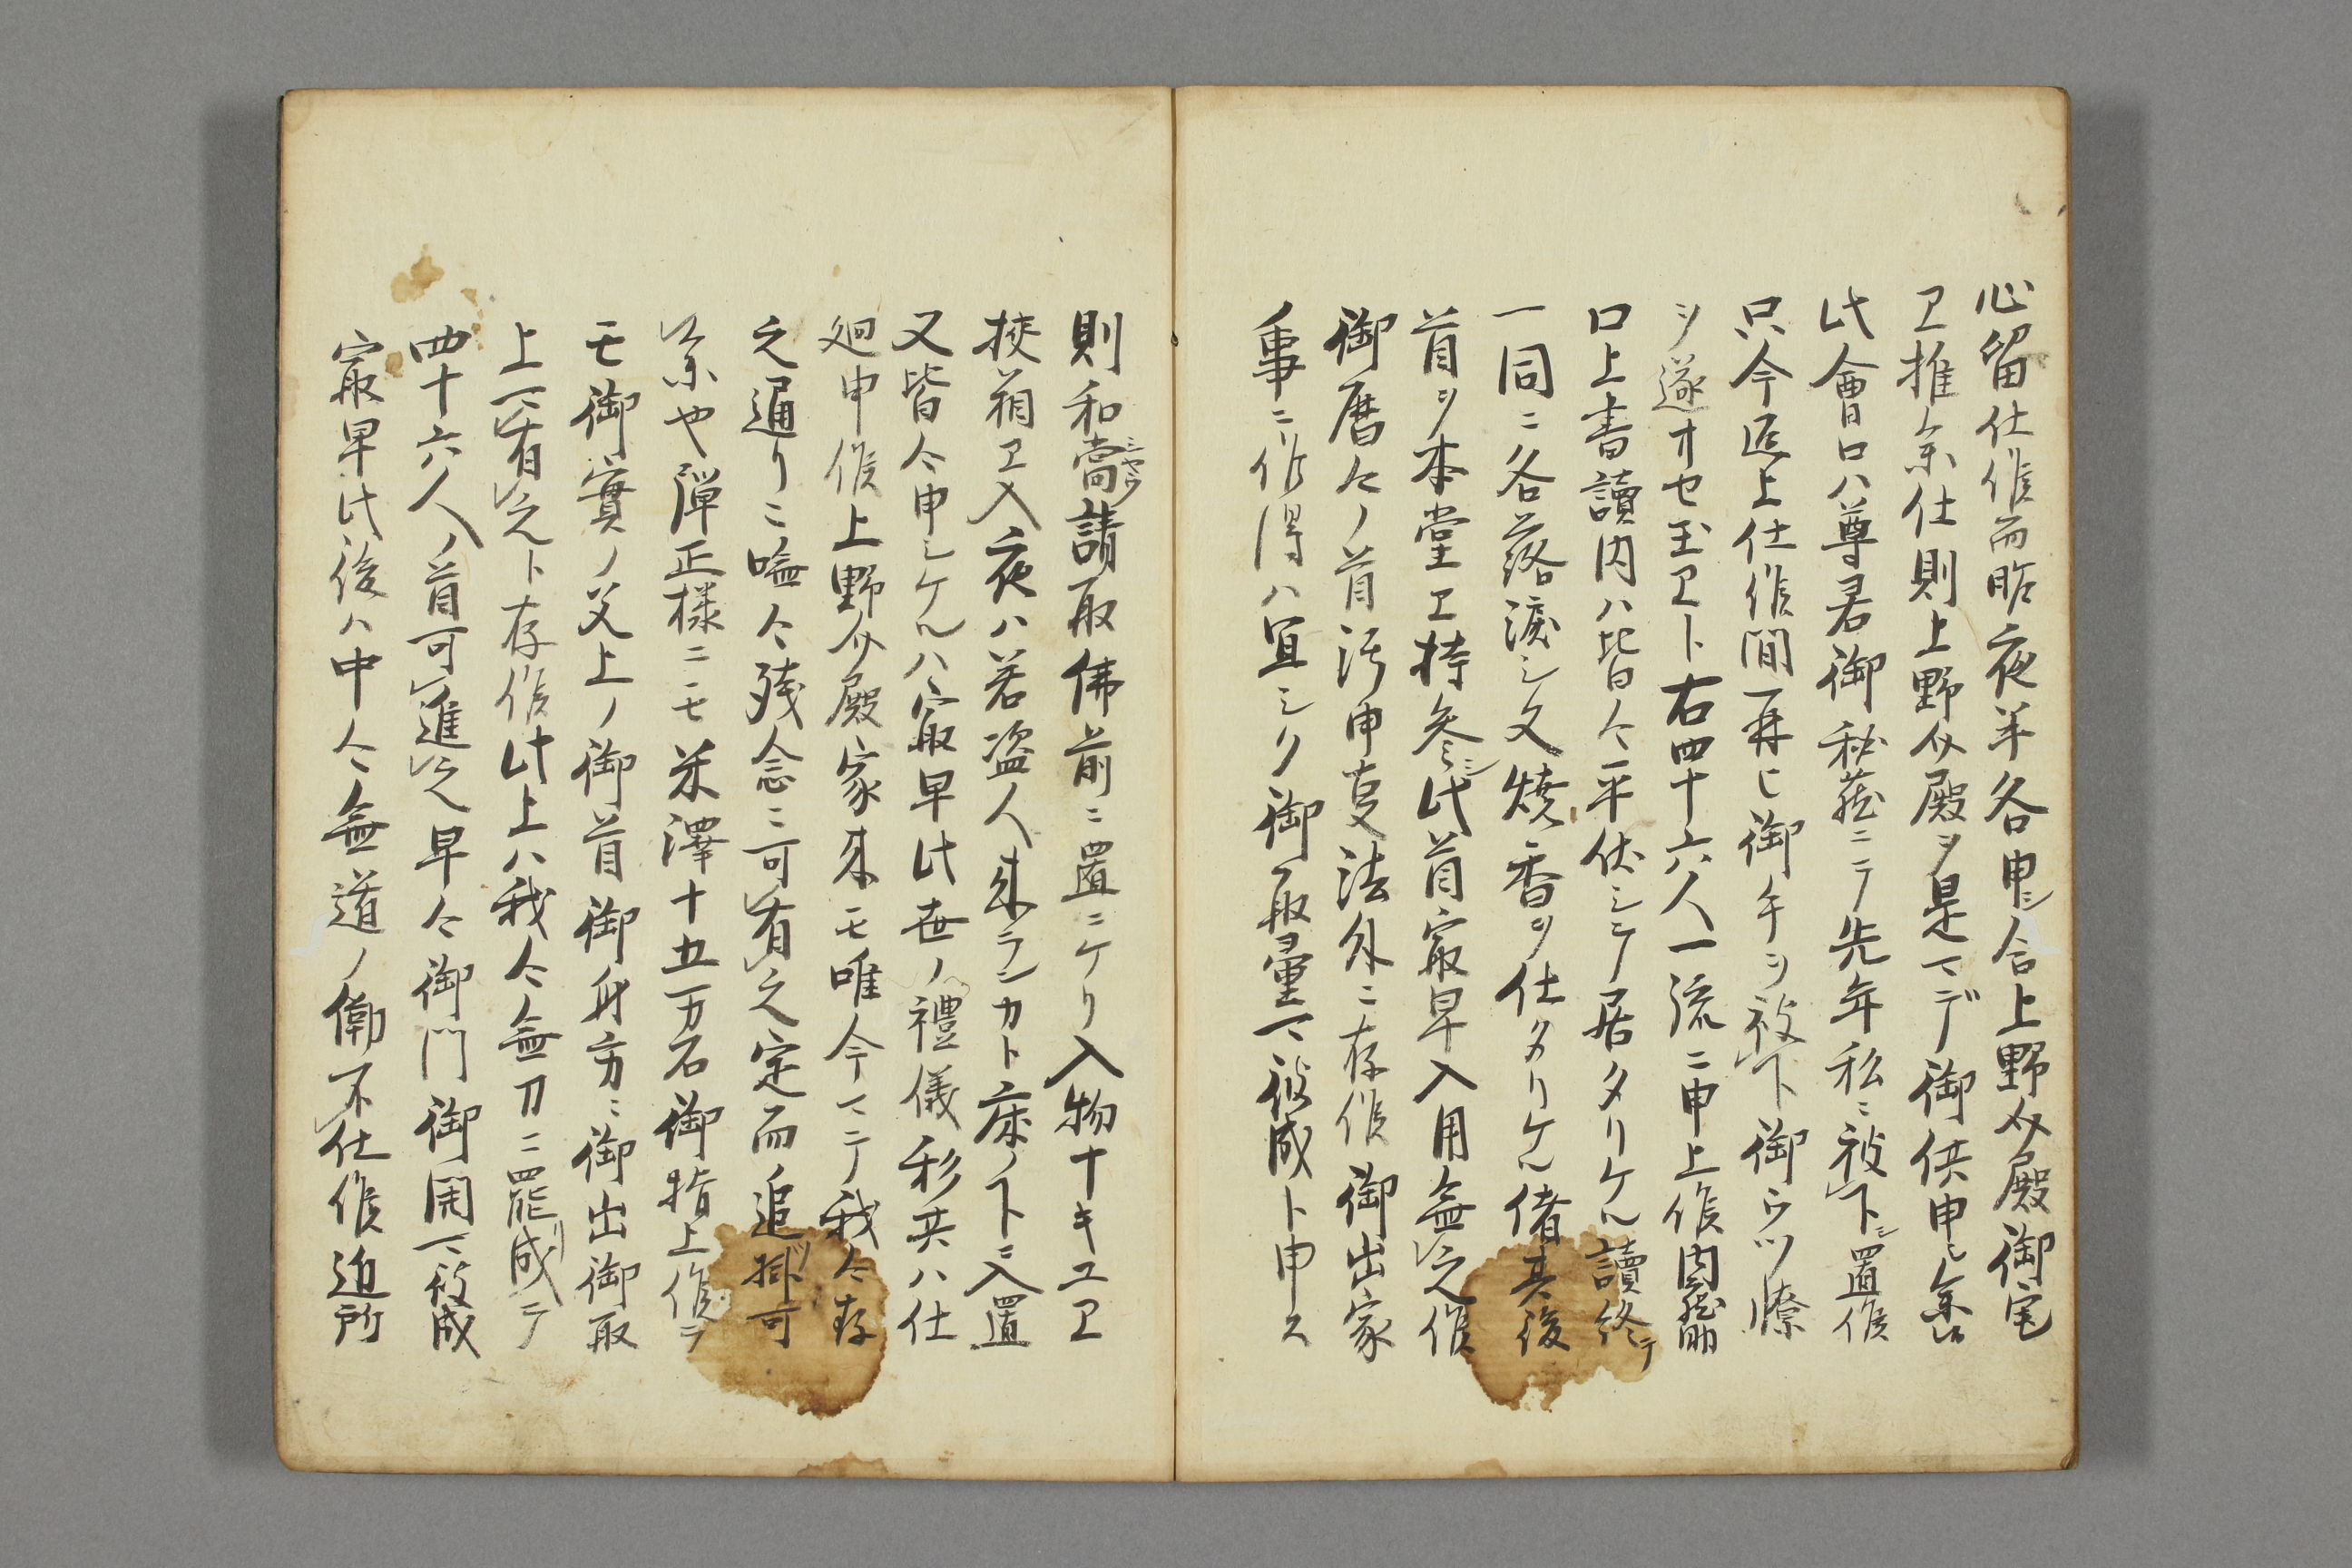 心留仕候而昨夜半各申シ合上野介殿御宅
エ推参仕則上野介殿ヲ是マデ御供申シ参ル
此合口ハ尊君御秘蔵ニテ先年私ニ被下シ置候
只今返上仕候間再ヒ御手ヲ被下御ウツ憤
ヲ遂オセ玉エト右四十六人一流ニ申上候内蔵助
口上書讀内ハ皆々平伏シテ居タリケル讀終テ
一同ニ各落涙シ又焼香ヲ仕タリケル偖其後
首ヲ本堂エ持参シ此首最早入用無之候
御暦々ノ首汚申事法外ニ存候御出家
ノ事ニ候得ハ宜シク御取量可被成ト申ス
則和尚請取佛前ニ置ニケリ入物ナキユエ
挟箱エ入夜ハ若盗人来ランカト床ノ下ニ入置
又皆々申シケルハ最早此世ノ禮儀私共ハ仕
廻申候上野介殿家来モ唯今マテ我々存
之通リニ嘸々残念ニ可有之定而追掛可
参也弾正様ニモ米澤十五万石御指上候テ
モ御實ノ父上ノ御首御身方ニ御出御取
上可有之ト存候此上ハ我々無刀ニ罷成テ
四十六人ノ首可進之早々御門御開可被成
最早此後ハ中々無道ノ働不仕候迫所